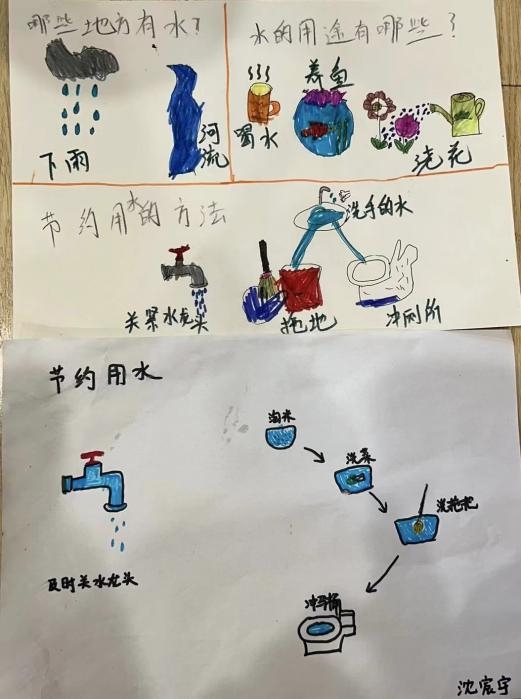 哪些地方有水？
下雨
河流
水的用途有哪些？
喝水
养鱼
浇花
节约用水的方法
关紧水龙头
洗手的水
拖地
冲厕所
节约用水
及时关水龙头
淘米
洗菜
洗拖把
冲马桶
沈宸宇